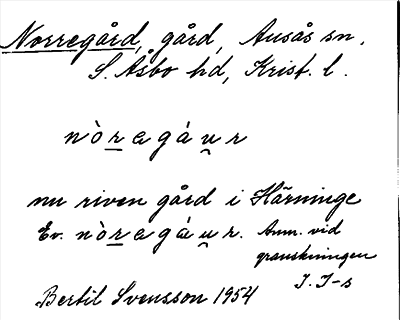 Norregård, gård, Ausås sn,
S. Åsbo hd, Krist. l.
nòragáur
nu riven gård i Härninge
Ev. nòragáur. Anm. vid
granskningen
I. I-s
Bertil Svensson 1954